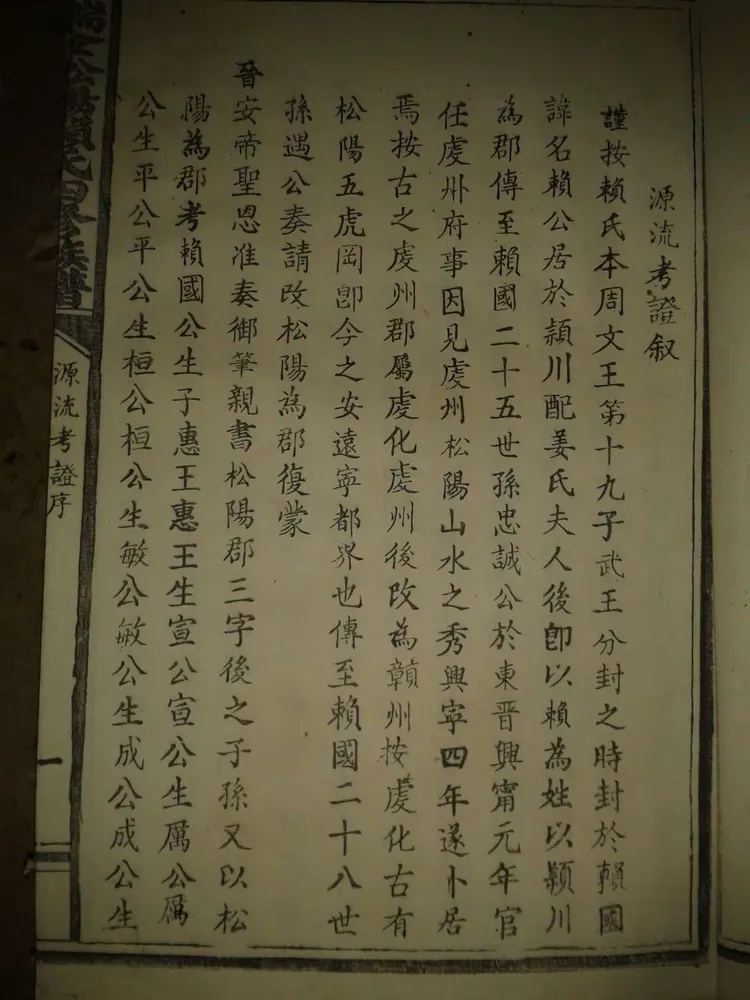 源流考證叙
謹按賴氏本周文王第十九子武王分封之時封於賴國
諱名賴公居於潁川配姜氏夫人後卽以賴為姓以潁川
為郡傳至賴國二十五世孫忠誠公於東晉興甯元年官
任虔州府事因見虔州松陽山水之秀興寧四年遂卜居
焉按古之虔州郡屬虔化虔州後改為贛州按虔化古有
松陽五虎岡卽今之安遠寧都界也傳至賴國二十八世
孫遇公奏請改松陽為郡復蒙
晉安帝聖恩准奏御筆親書松陽郡三字後之子孫又以松
陽為郡考賴國公生子惠王惠王生宣公宣公生厲公厲
公生平公平公生桓公桓公生敏公敏公生成公成公生
賴氏四修族譜
源流考證序
一